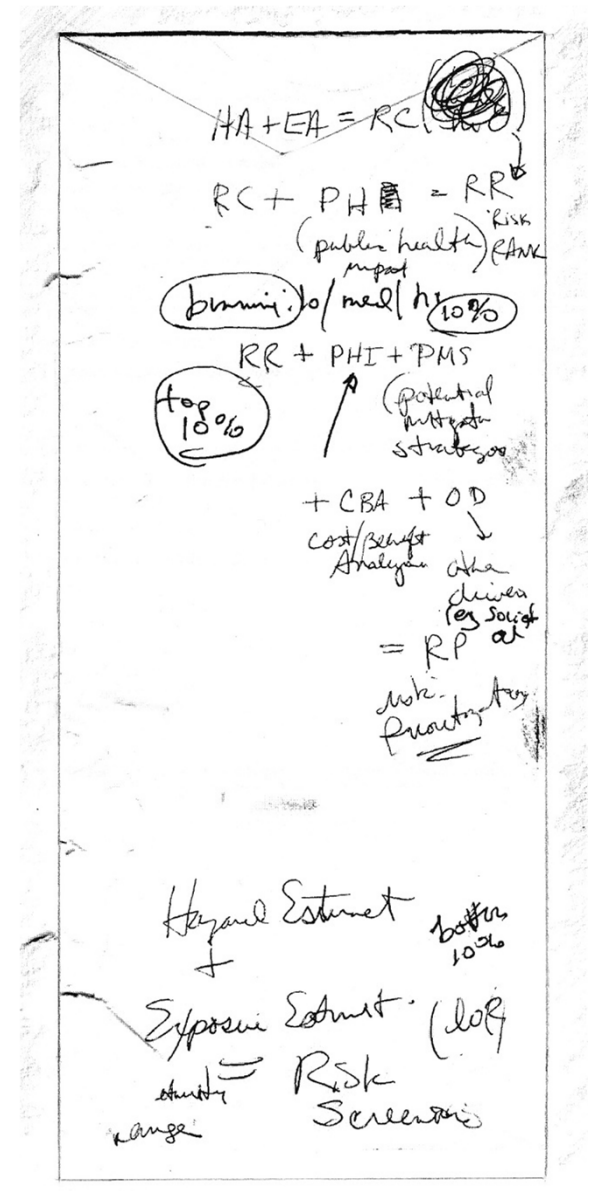 HA + EA = RC
RC + PH = RR
Risk
RANK
(public health)
impact
lo / med / hi 10%
RR + PHI + PMS
top
10%
(potential
strategies
+ CBA + OD
Cost/Benefit
Analysis
other
drivers
(eg
= RP
risk
Prioritization
Hazard Estimat
+
bottom
10%
Exposure Estimat.
= Risk
Screening
range